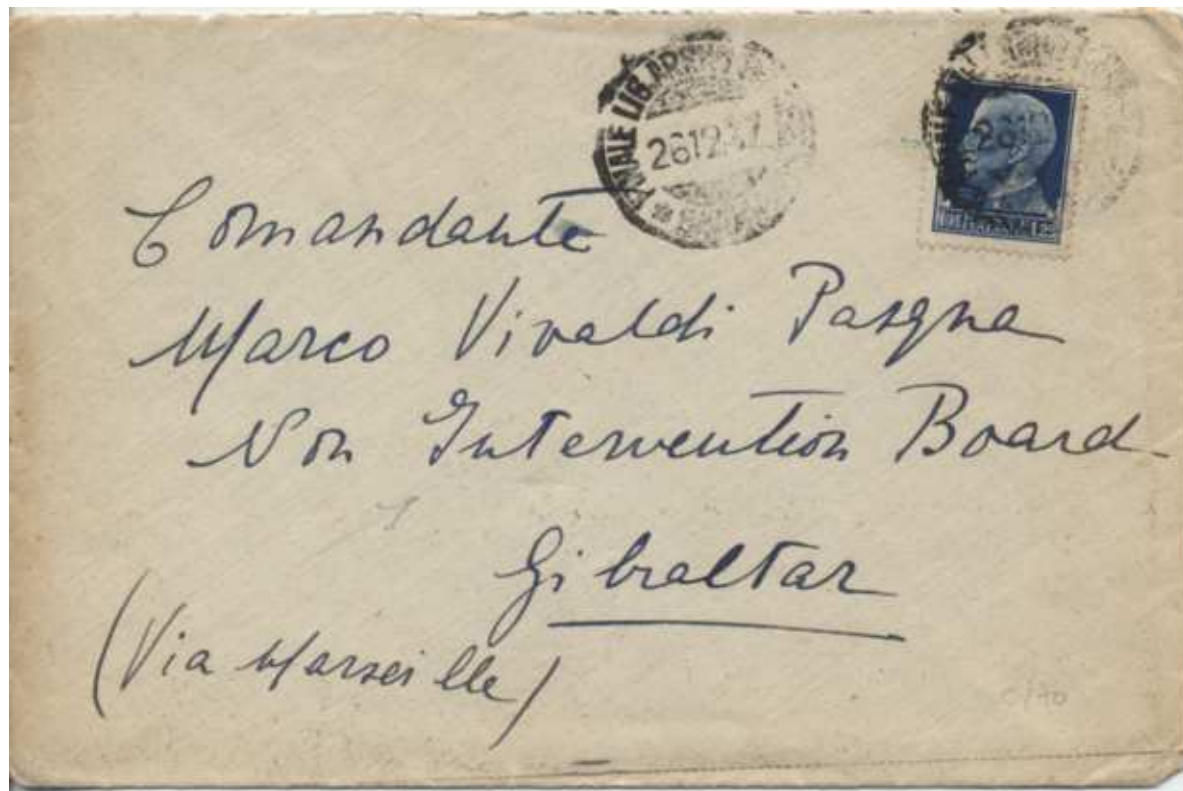 26 12 37
Comandante
Marco Vivaldi Pasqua
Non Intervention Board
Gibraltar
(Via Marseille)